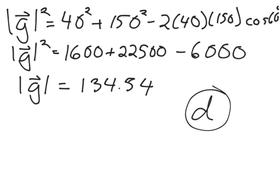 |g⃗|² = 40² + 150² - 2(40)(150) cos(60°
|g⃗|² = 1600 + 22500 - 6000
|g⃗| = 134.54
d